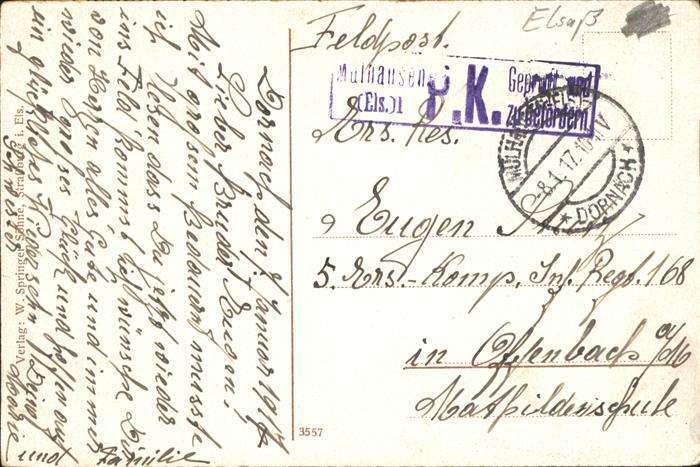 Elsaß
Feldpost.
Mülhausen
(Els.)1
P.K.
Geprüft und
zu befördern
MÜLHAUSEN (ELS.)
-8.1.17.10-11V
* DORNACH *
Ers. Res.
Eugen
5. Ers.-Komp. Inf. Regt. 168
in Offenbach a/M
Mathildenschule
Dornach, den 7. Januar 1917
Lieber Bruder Eugen!
Mit grosem Bedauern musste
ich lesen dass Du jetzt wieder
ins Feld kommst ich wünsche Dir
von Herzen alles Gute und immer
wieder groses Glück und hoffen auf
ein glückliches Wiedersehn Deine
Schwester Marie
und Familie
Verlag: W. Springer Söhne, Strassburg i. Els.
3557